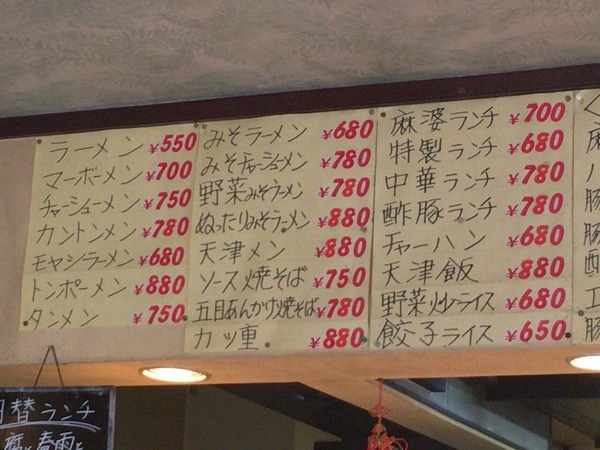 ラーメン ¥550
マーボーメン ¥700
チャーシューメン ¥750
カントンメン ¥780
モヤシラーメン ¥680
トンポーメン ¥880
タンメン ¥750
みそラーメン ¥680
みそチャーシューメン ¥780
野菜みそラーメン ¥780
ぬったりみそラーメン ¥880
天津メン ¥880
ソース焼そば ¥750
五目あんかけ焼そば ¥780
カツ重 ¥880
麻婆ランチ ¥700
特製ランチ ¥680
中華ランチ ¥780
酢豚ランチ ¥780
チャーハン ¥680
天津飯 ¥880
野菜炒ライス ¥680
餃子ライス ¥650
替ランチ
腐と春雨と